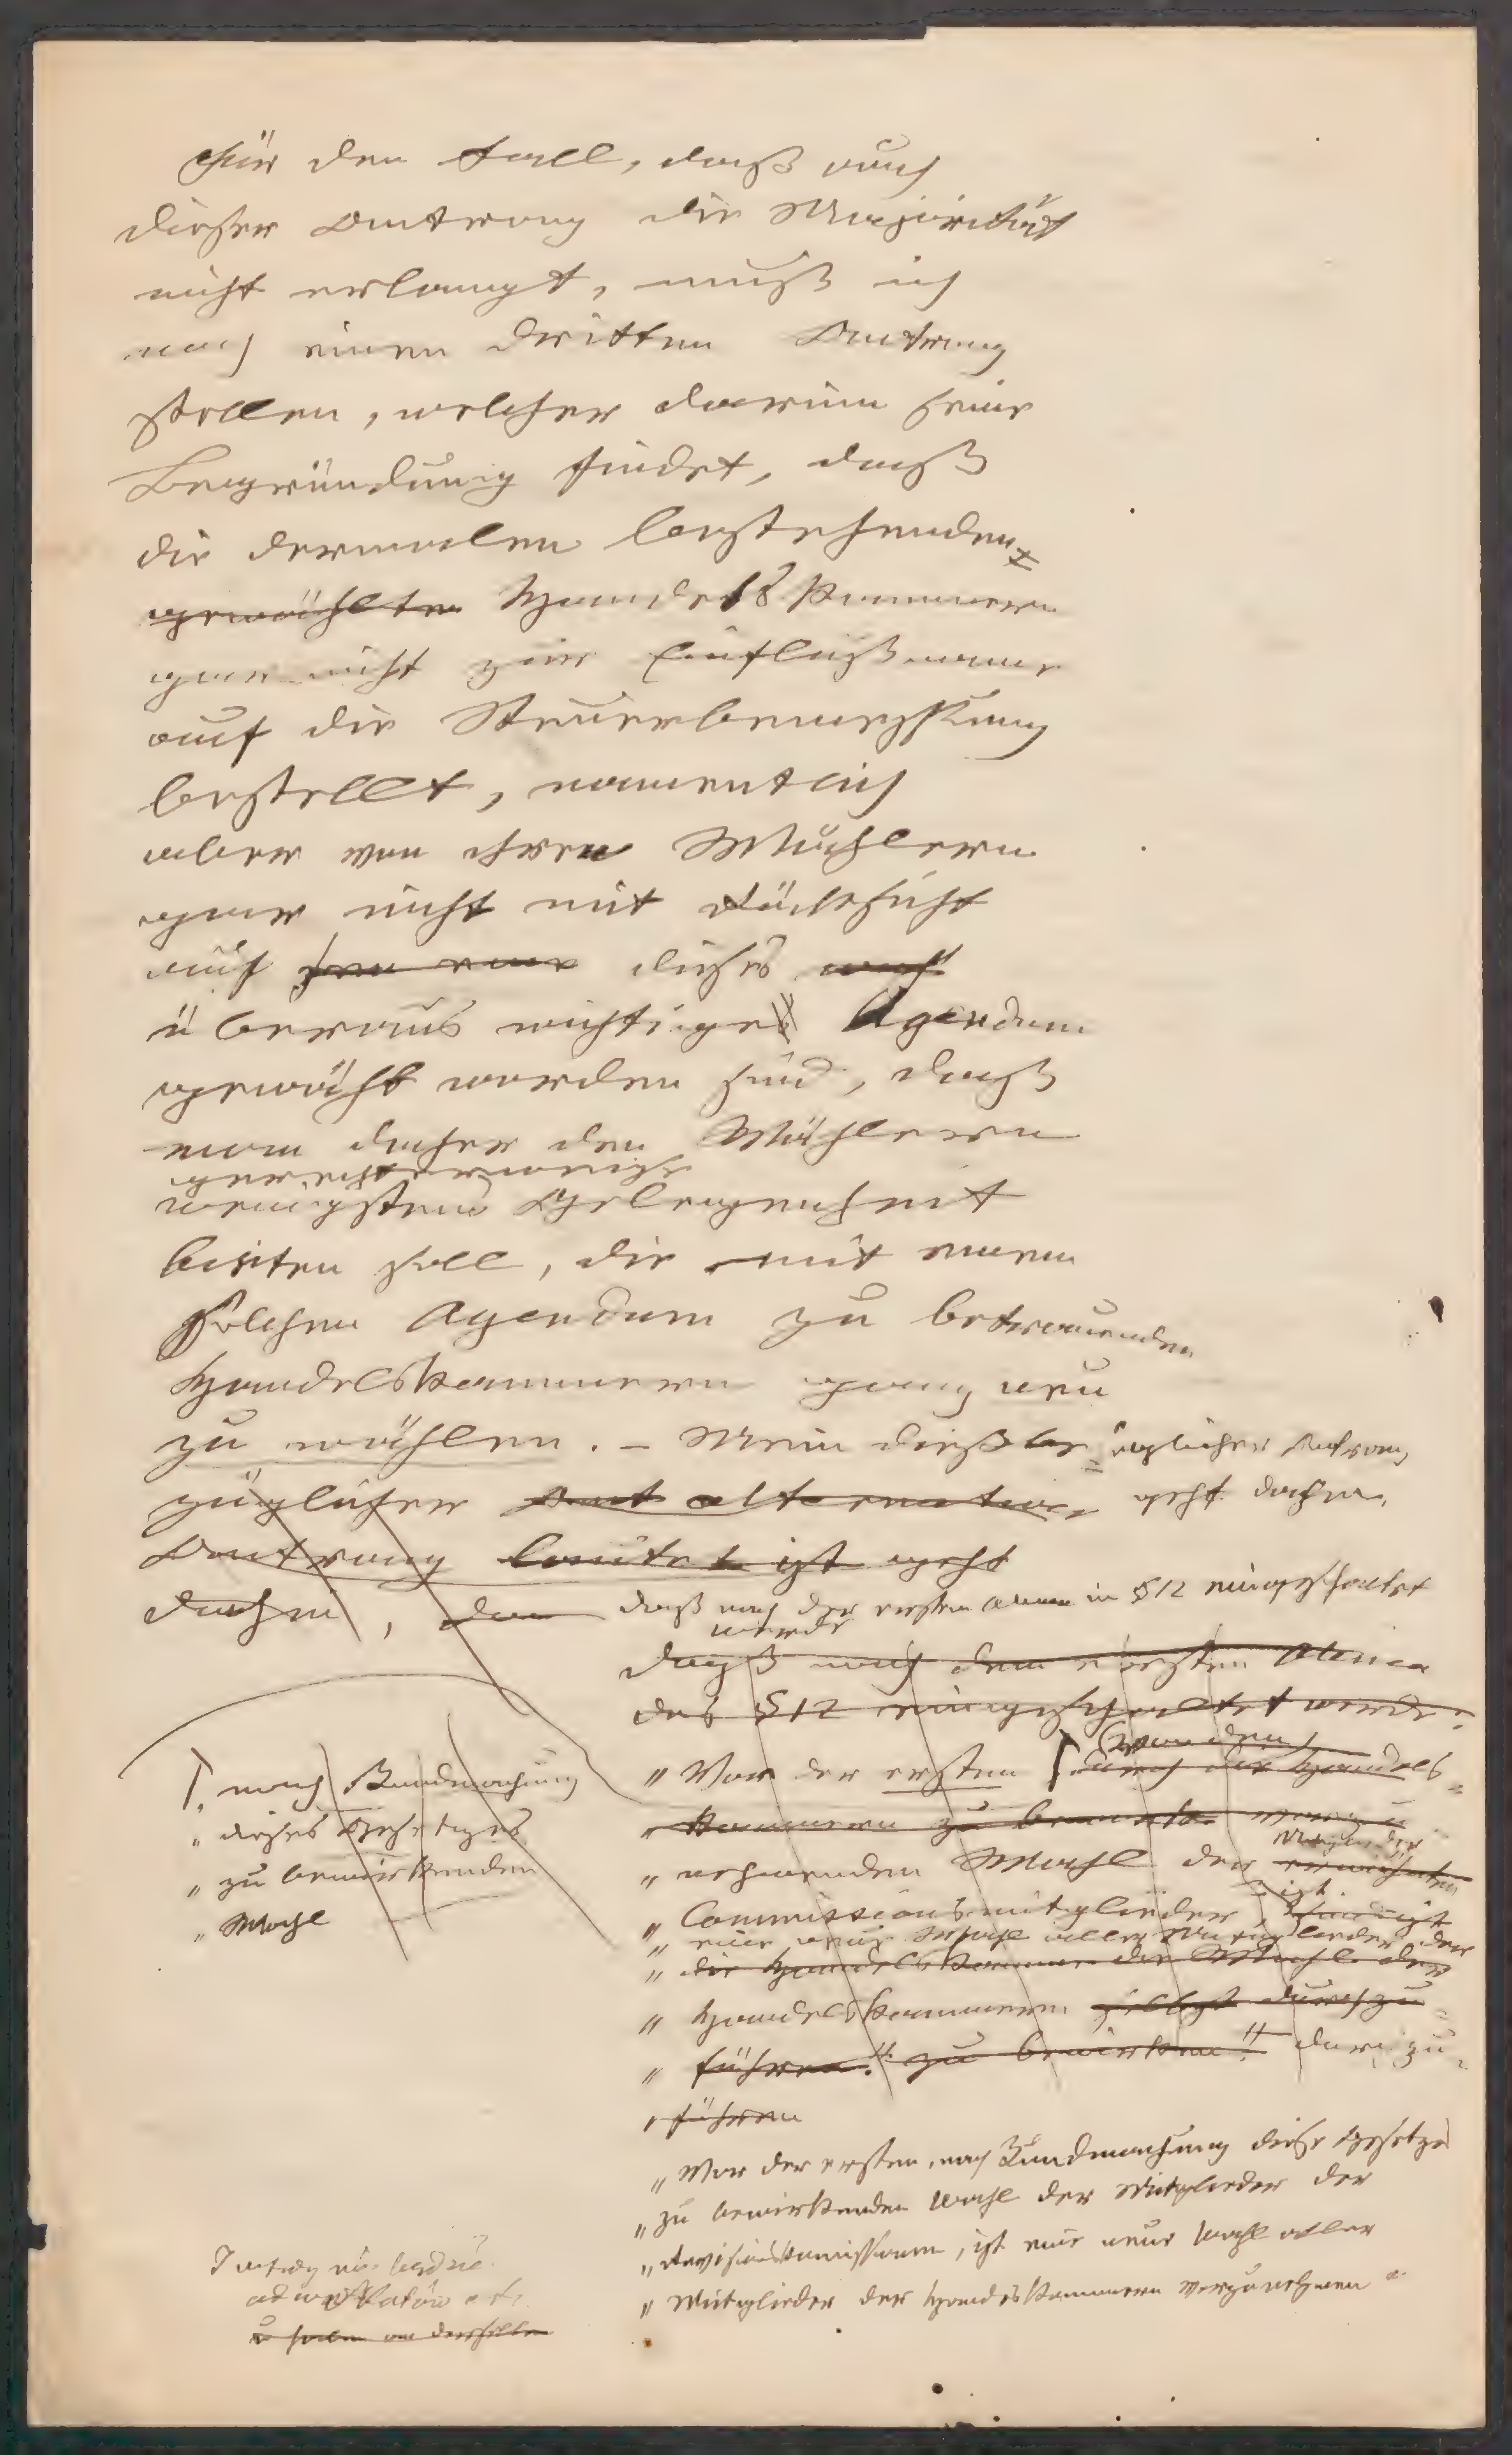 Für den Fall, daß auch
dieser Antrag die Majorität
nicht erlangt, muß ich
noch einen dritten Antrag
stellen, welcher darin seine
Begründung findet, daß
die dermalen bestehenden
gewählten Handelskammern
gar nicht zur Einflußname
auf die Steuerbemessung
bestellt, namentlich
aber von ihren Wählern
gar nicht mit Rücksicht
auf dieses
überaus wichtige Agendum
gewählt worden sind, daß
man daher den Wählern
gerechterweise
wenigstens Gelegenheit
bieten soll, die mit einem
solchen Agendum zu betrauenden
Handelskammern ganz neu
zu wählen. – Mein dießbe=züglicher Antrag
züglicher alternativer geht dahin,
Antrag lautet ist geht
dahin, daß nach der ersten Alinea in §12 eingeschaltet
werde
daß nach dem ersten Alinea
des §12 eingeschaltet werde:
„Vor der ersten durch die Handels=
„kammern zu
„nehmenden Wahl der
„Commissionsmitglieder, ist
„eine neue Wahl aller Mitglieder der
„die Handelskammer die Wahl der
„Handelskammern selbst durchzu=
„führen." zu bewirken." durchzu=
„führen
nach Kundmachung
„dieses Gesetzes
„zu bewirkenden
„Wahl
„Vor der ersten, nach Kundmachung dieses Gesetzes
„zu bewirkenden Wahl der Mitglieder der
„Revisionskommissionen, ist eine neue Wahl aller
„Mitglieder der Handelskammern vorzunehmen"